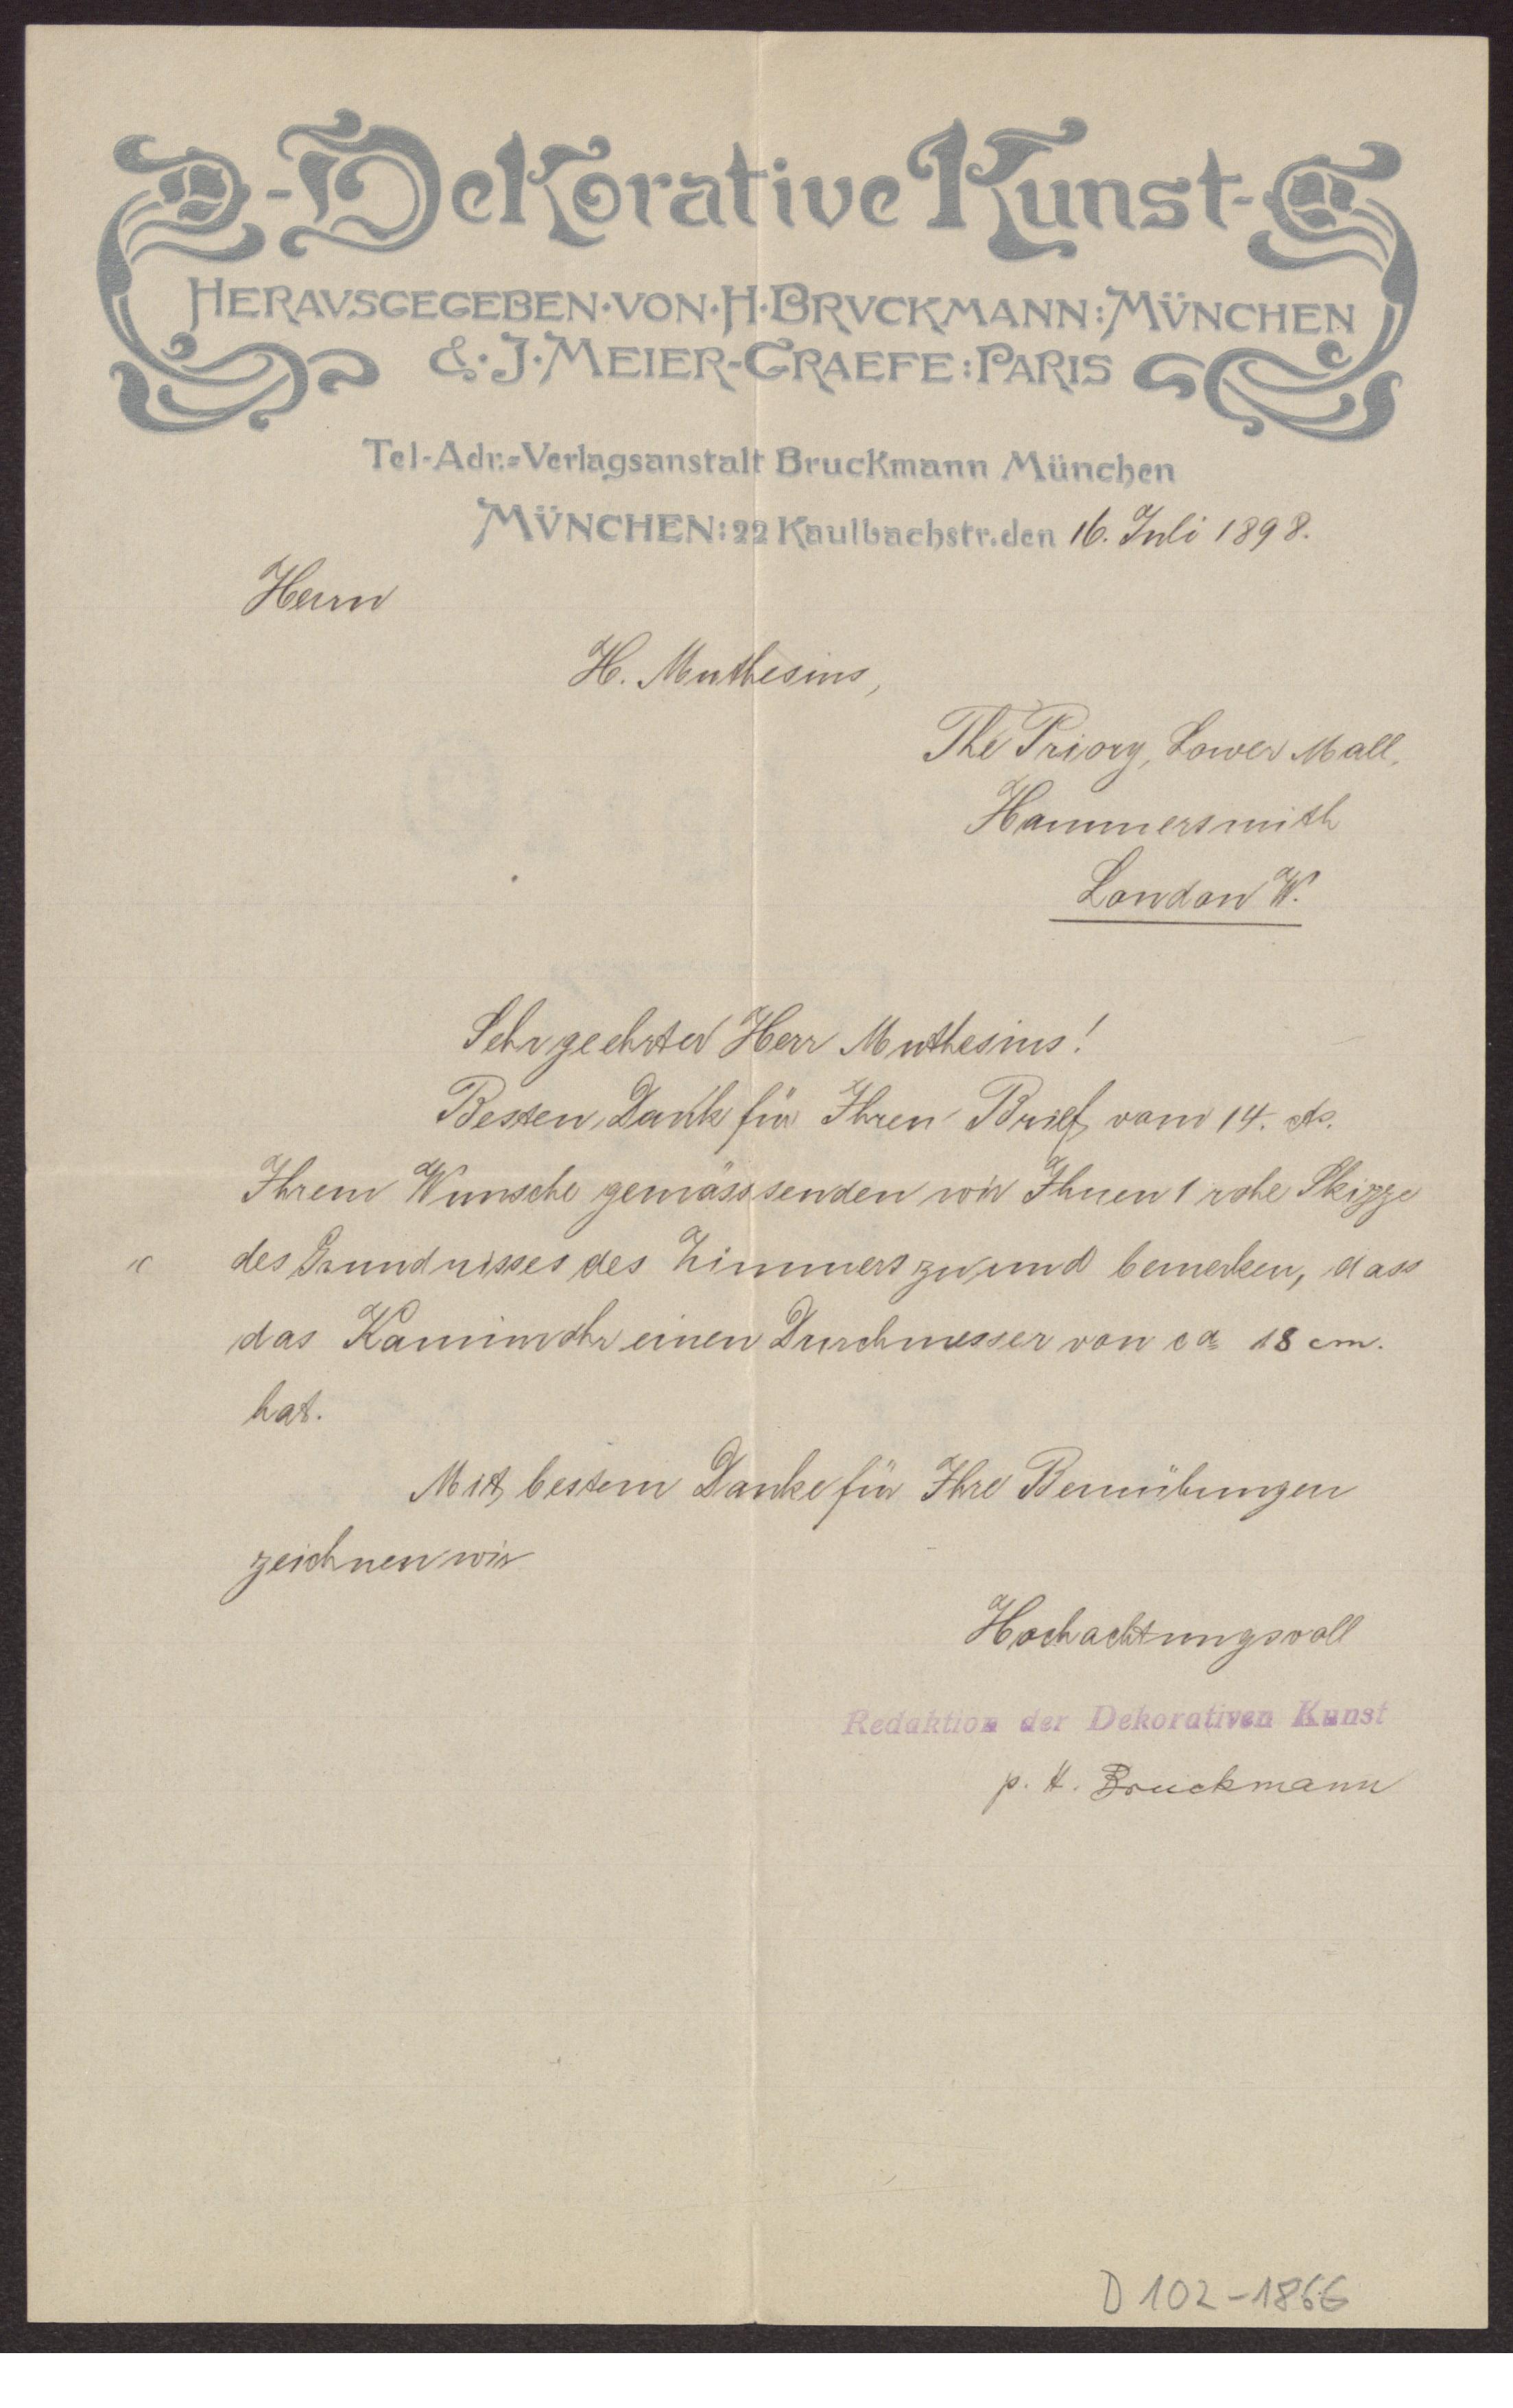 Dekorative Kunst
HERAVSGEGEBEN·VON·H·BRVCKMANN:MÜNCHEN
&·J·MEIER-GRAEFE:PARIS
Tel-Adr.=Verlagsanstalt Bruckmann München
MÜNCHEN:22 Kaulbachstr.den 16. Juli 1898.
Herrn
H. Muthesius,
The Priory, Lower Mall,
Hammersmith
London W.
Sehr geehrter Herr Muthesius!
Besten Dank für Ihren Brief vom 14. cts.
Ihrem Wunsche gemäss senden wir Ihnen 1 rohe Skizze
des Grundrisses des Zimmers zu und bemerken, dass
das Kaminrohr einen Durchmesser von ca 18 cm.
hat.
Mit bestem Danke für Ihre Bemühungen
zeichnen wir
Hochachtungsvoll
Redaktion der Dekorativen Kunst
p. H. Bruckmann
D 102-1866